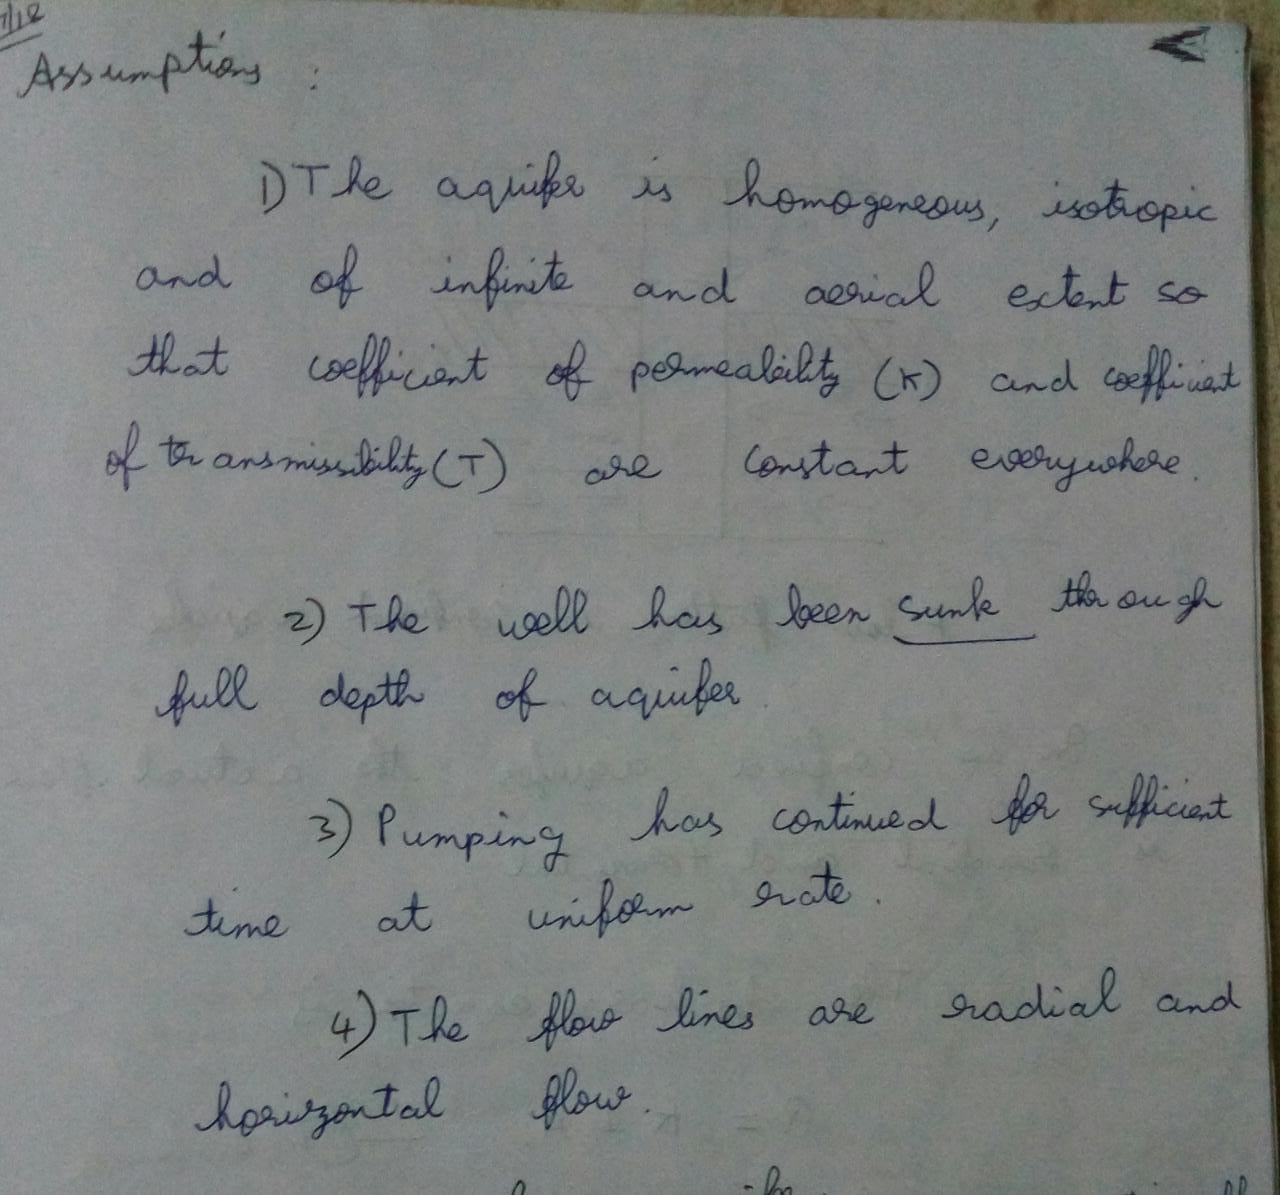 Assumptions :
1) The aquifer is homogeneous, isotropic
and of infinite and aerial extent so
that coefficient of permeability (K) and coefficient
of transmissibility (T) are constant everywhere.
2) The well has been sunk through
full depth of aquifer
3) Pumping has continued for sufficient
time at uniform rate.
4) The flow lines are radial and
horizontal flow.